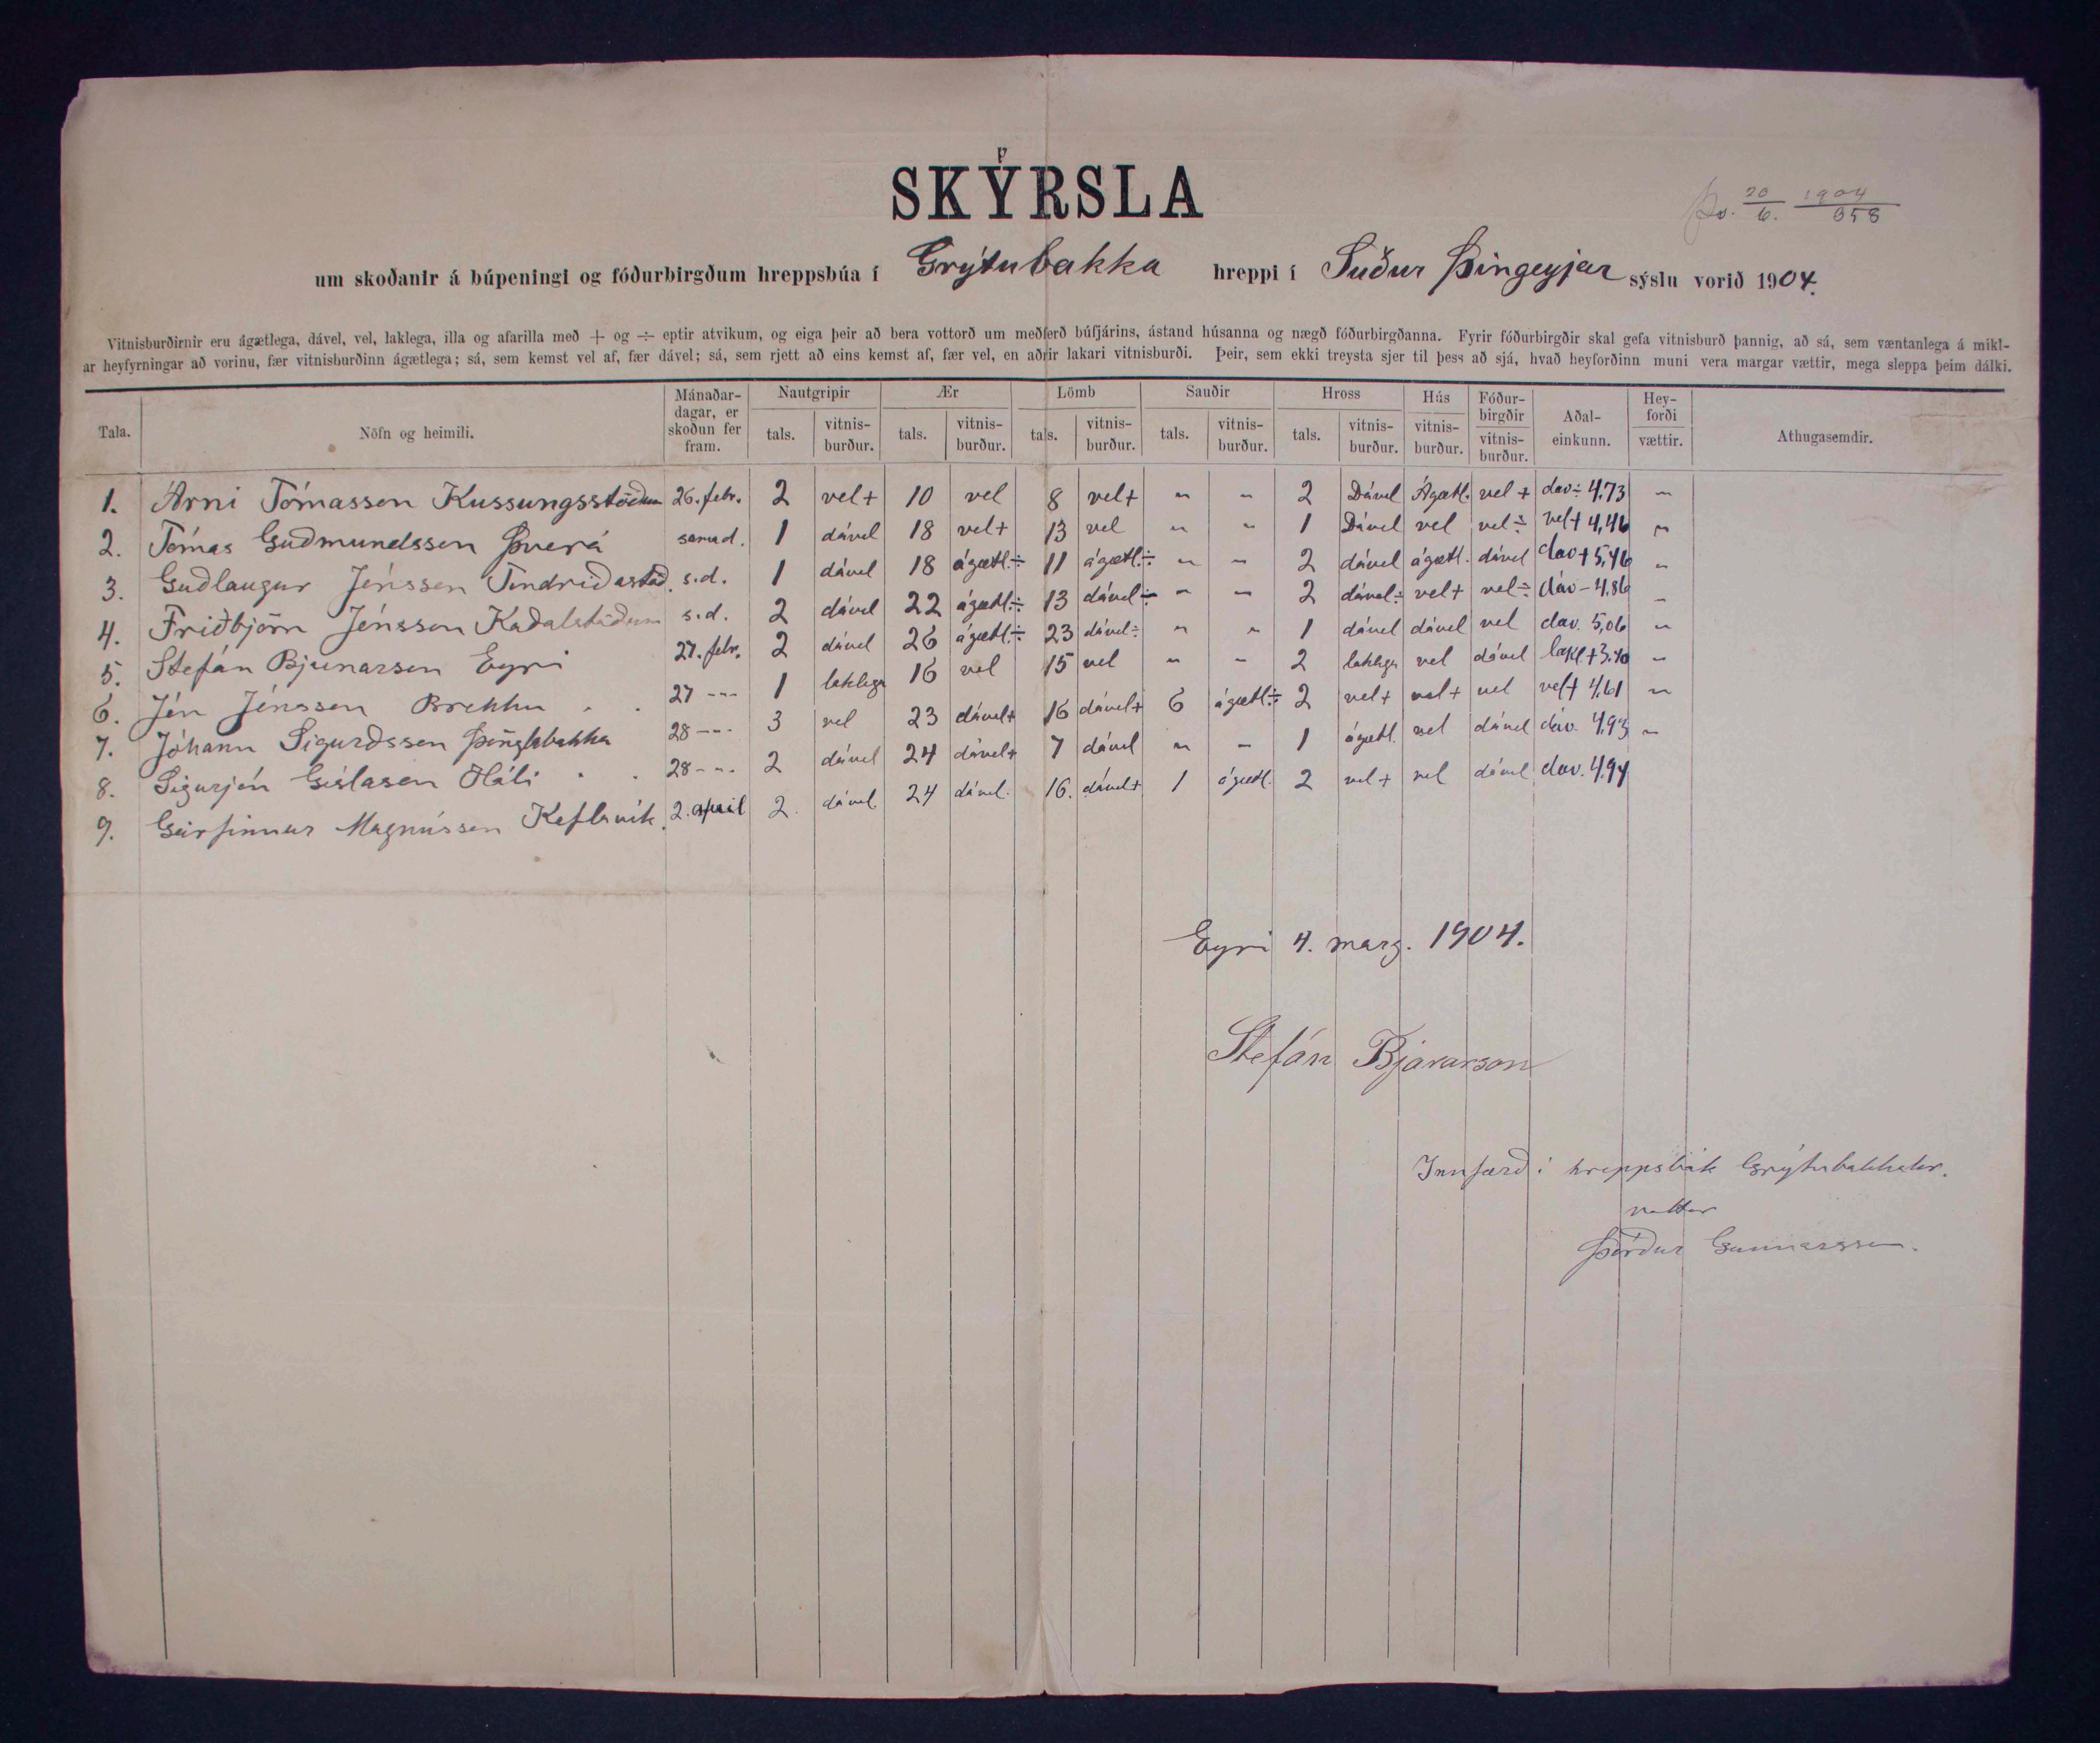 SKÝRSLA
Þv. 20/6. 1904/358
um skoðanir á búpeningi og fóðurbirgðum hreppsbúa í Grýtubakka hreppi í Suður Þingeyjar sýslu vorið 1904.
Vitnisburðirnir eru ágætlega, dável, vel, laklega, illa og afarilla með + og ÷ eptir atvikum, og eiga þeir að bera vottorð um meðferð búfjárins, ástand húsanna og nægð fóðurbirgðanna. Fyrir fóðurbirgðir skal gefa vitnisburð þannig, að sá, sem væntanlega á mikl-
ar heyfyrningar að vorinu, fær vitnisburðinn ágætlega; sá, sem kemst vel af, fær dável; sá, sem rjett að eins kemst af, fær vel, en aðrir lakari vitnisburði. Þeir, sem ekki treysta sjer til þess að sjá, hvað heyforðinn muni vera margar vættir, mega sleppa þeim dálki.
Tala. Nöfn og heimili. Mánaðar-dagar, er skoðun fer fram. Nautgripir tals. vitnis-burður. Ær tals. vitnis-burður. Lömb tals. vitnis-burður. Sauðir tals. vitnis-burður. Hross tals. vitnis-burður. Hús vitnis-burður. Fóður-birgðir vitnis-burður. Aðal-einkunn. Hey-forði vættir. Athugasemdir.
1. Árni Tómasson Kussungsstöðum 26. febr. 2 vel+ 10 vel 8 vel+ " " 2 Dável Ágætl. vel + dav÷ 4,73 "
2. Tómas Guðmundsson Þverá samd. 1 dável 18 vel+ 13 vel " " 1 Dável vel vel÷ vel+ 4,46 "
3. Guðlaugur Jónsson Tindriðastöð. s.d. 1 dável 18 ágætl.÷ 11 ágætl.÷ " " 2 dável ágætl. dável dav+ 5,46 "
4. Friðbjörn Jónsson Kaðalstöðum s.d. 2 dável 22 ágætl.÷ 13 dável÷ " " 2 dável÷ vel+ vel÷ dáv – 4,86 "
5. Stefán Bjarnarson Eyri 27. febr. 2 dável 26 ágætl÷ 23 dável÷ " " 1 dável dável vel dav. 5,06 "
6. Jón Jónsson Brekku . . 27 --- 1 laklega 16 vel 15 vel " " 2 laklega vel dável lakl.+ 3,40 "
7. Jóhann Sigurðsson Þönglabakka 28 --- 3 vel 23 dável+ 16 dável+ 6 ágætl÷ 2 vel+ vel+ vel vel+ 4,61 "
8. Sigurjón Gíslason Hóli . . 28 --- 2 dável 24 dável+ 7 dável " " 1 ágætl. vel dável dáv. 4,93 "
9. Geirfinnur Magnússon Keflavík. 2. apríl 2. dável. 24 dável. 16. dável+ 1 ágætl. 2 vel+ vel dável dav. 4,94
Eyri 4. marz. 1904.
Stefán Bjarnarson
Innfærð í hreppsbók Grýtubakkahr.
vottar
Þórður Gunnarsson.